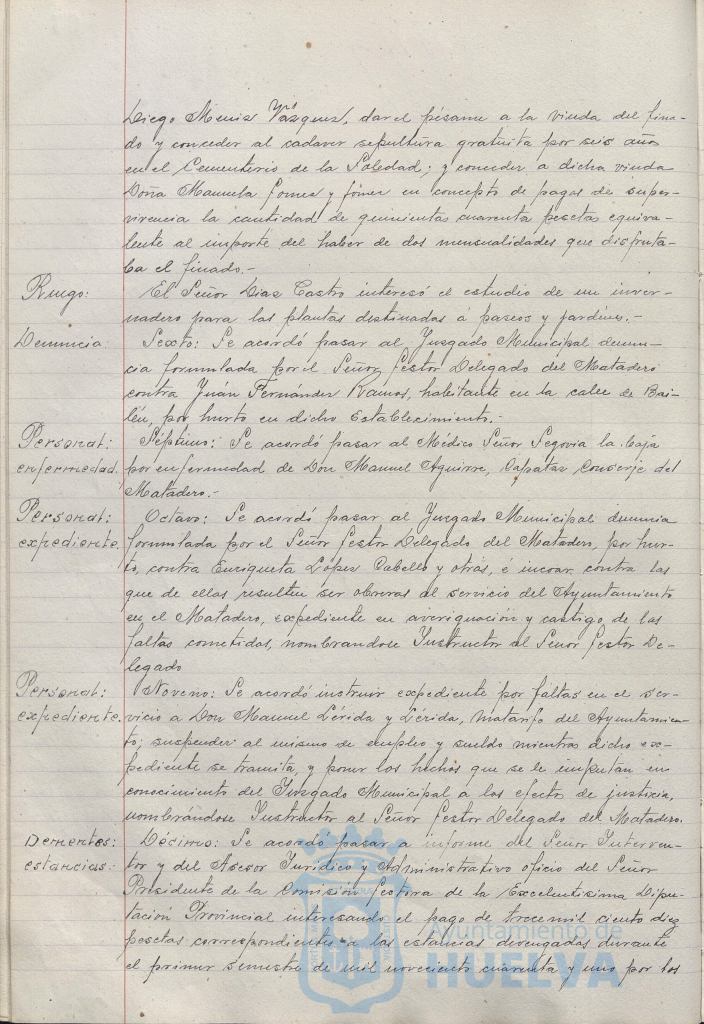 Diego Menis Vázquez, dar el pésame a la viuda del fina-
do y conceder al cadaver sepultura gratuita por seis años
en el Cementerio de la Soledad; y conceder a dicha viuda
Doña Manuela Gomez y Gómez en concepto de pagas de super-
vivencia la cantidad de quinientas cuarenta pesetas equiva-
lente al importe del haber de dos mensualidades que disfruta-
ba el finado.-
Ruego: El Señor Dias Castro interesó el estudio de un inver-
nadero para las plantas destinadas á paseos y jardines.-
Denuncia: Sexto: Se acordó pasar al Juzgado Municipal denun-
cia formulada por el Señor Gestor Delegado del Matadero
contra Juán Fernández Ramos, habitante en la calle de Bai-
lén, por hurto en dicho Establecimiento.-
Personal: Séptimo: Se acordó pasar al Médico Señor Segovia la baja
enfermedad. por enfermedad de Don Manuel Aguirre, Capataz Conserje del
Matadero.-
Personal: Octavo: Se acordó pasar al Juzgado Municipal denuncia
expediente. formulada por el Señor Gestor Delegado del Matadero, por hur-
to, contra Enriqueta López Cabello y otras, é incoar, contra las
que de ellas resulten ser obreras al servicio del Ayuntamiento
en el Matadero, expediente en averiguación y castigo de las
faltas cometidas, nombrandose Instructor al Señor Gestor De-
legado
Personal: Noveno: Se acordó instruir expediente por faltas en el ser-
expediente. vicio a Don Manuel Lérida y Lérida, matarife del Ayuntamien-
to; suspender al mismo de empleo y sueldo mientras dicho ex-
pediente se tramita, y poner los hechos que se le imputan en
conocimiento del Juzgado Municipal a los efectos de justicia,
nombrándose Instructor al Señor Gestor Delegado del Matadero.
Dementes: Décimo: Se acordó pasar a informe del Señor Interven-
estancias. tor y del Asesor Jurídico y Administrativo oficio del Señor
Presidente de la Comisión Gestora de la Excelentisima Dipu-
tación Provincial interesando el pago de trece mil ciento diez
pesetas correspondientes a las estancias devengadas durante
el primer semestre de mil noveciento cuarenta y uno por los
Ayuntamiento de
HUELVA